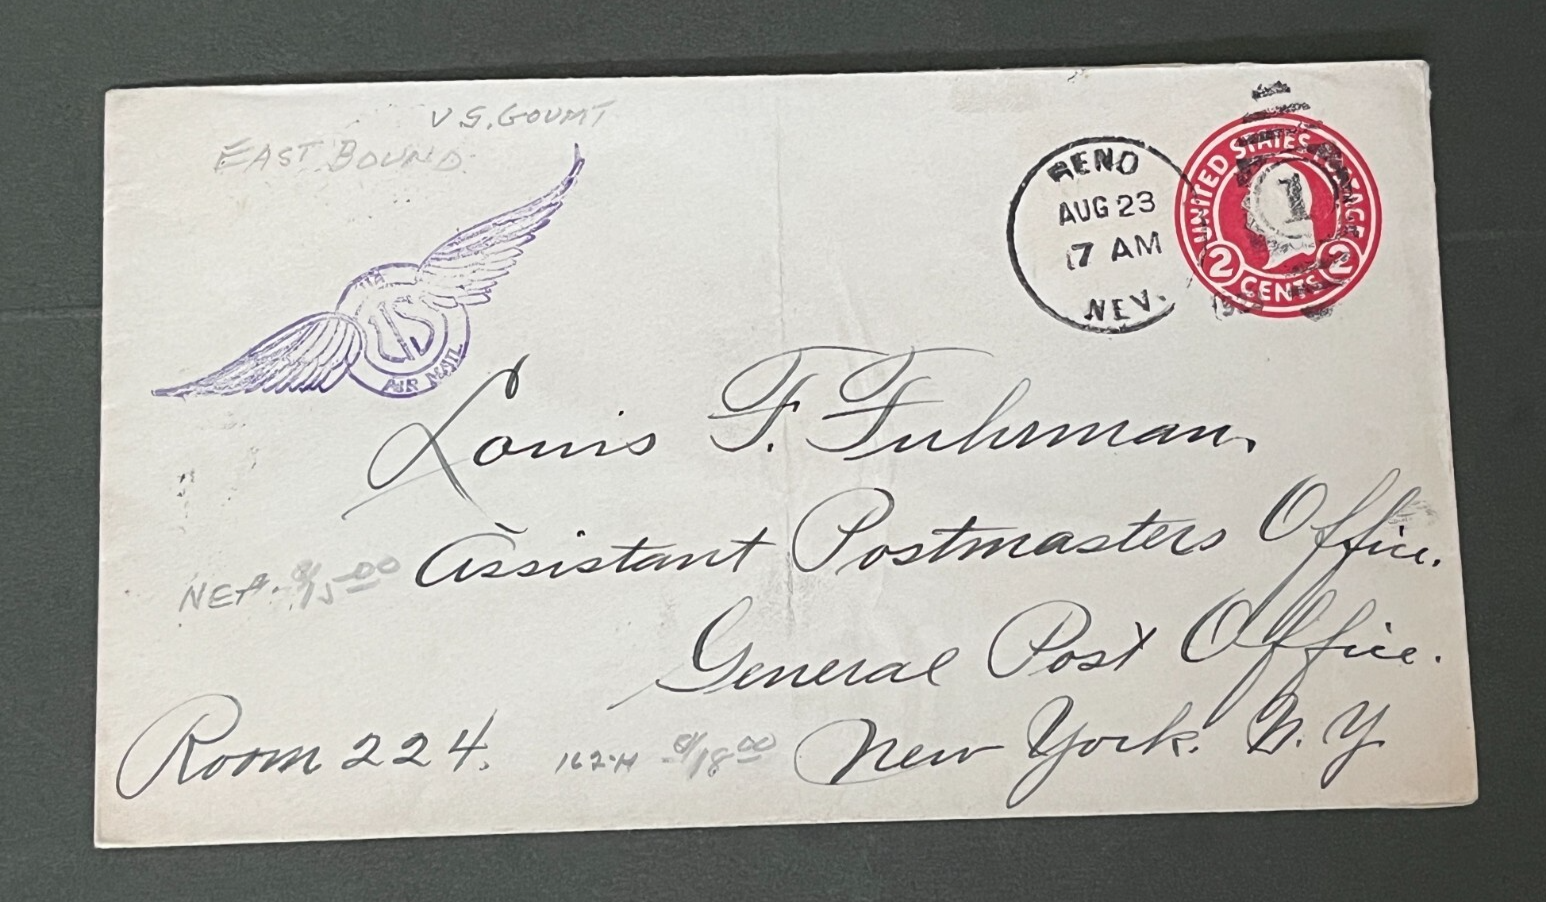 U S. GOVMT
EAST BOUND
RENO
AUG 23
7 AM
NEV.
UNITED STATES POSTAGE
1
2 CENTS 2
US
AIR MAIL
Louis F. Fuhrman.
Assistant Postmasters Office.
General Post Office.
Room 224. New York. N. Y.
162-H 8/18 00